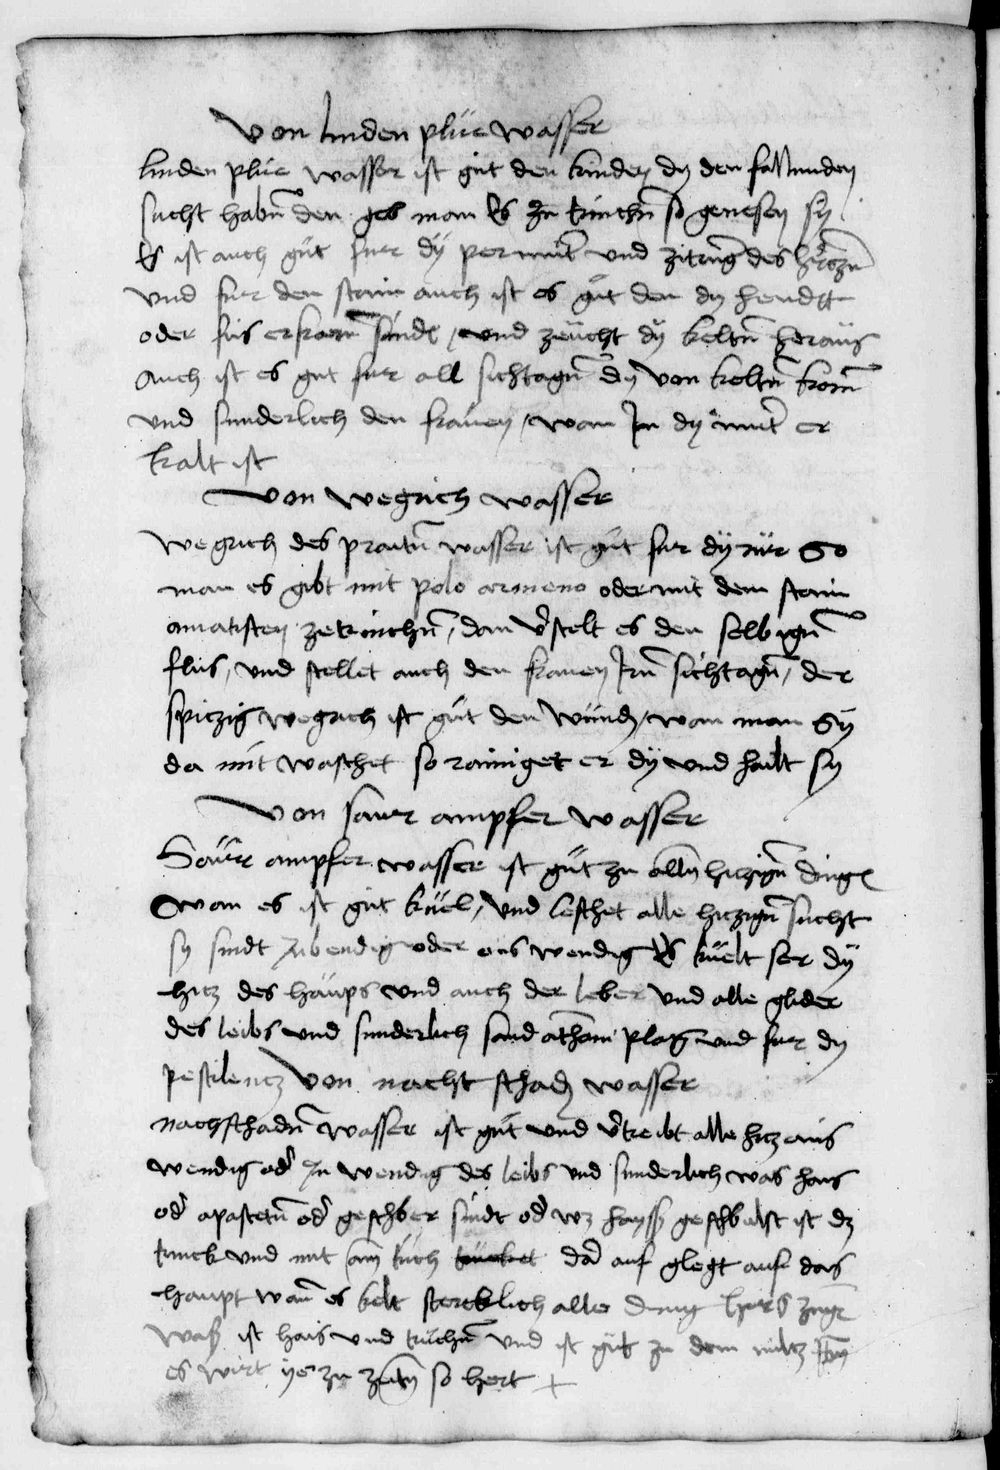 Von linden plue wasser
linden plüe wasser ist güt den kinderñ dy den fallunden
sücht habñ den geb man Es zu trinckñ so genesen sy
Es ist auch güt fur dy permuter und zitrung des herczñ
vnd fur den stain auch ist es güt den dy hendt
oder füs erfrorñ sindt / und zeücht dy keltñ heraüs
Auch ist es gut fur all sichtagñ dy von keltñ komñ
vnd sunderlich den frauen / wan Jn dy muter er
kalt ist
Von wegrich wasser
Wegrich des praitñ wasser ist güt fur dy rür So
man es gibt mit polo armeno oder mit dem stain
amatisten zetrinckhñ / dan v̄stelt es den selbigñ
flüs / vnd stellet auch den frauen Jrñ sichtagñ / der
spiczig wegrich ist güt den wunden / wan man Sy
da mit waschet so rainiget er dy vnd hailt sy
Von saur ampfer wasser
Saür ampfer wasser ist güt zu allñ hiczigñ dingen
Wan es ist güt küel / vnd leschet alle hiczigñ sücht
sy sindt Jnbendig oder aus wendig Es küelt ser dy
hicz des haüps vnd auch der leber vnd alle glider
des leibs vnd sunderlich sand athoni plag vnd fur dy
pestilencz Von nacht schadñ wasser
nachschadñ wasser ist güt vnd v̄treibt alle hicz aüs
wendig od̄ Jn wendig des leibs vnd sunderlich was hais
od̄ apastetñ od̄ geschber sindt od̄ wz hayss geschbulst ist dz
trinck vnd mit aim tüch dar auf glegt auf das
haupt wañ es kelt sterklich alle ding
wasser ist hais vnd truckñ vnd ist güt zu dem milcz
es wirt ye zu zeitñ so hert